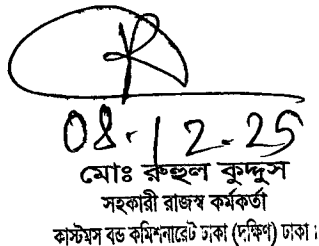 08.12.25
মোঃ রুহুল কুদ্দুস
সহকারী রাজস্ব কর্মকর্তা
কাস্টমস বন্ড কমিশনারেট ঢাকা (দক্ষিণ) ঢাকা।